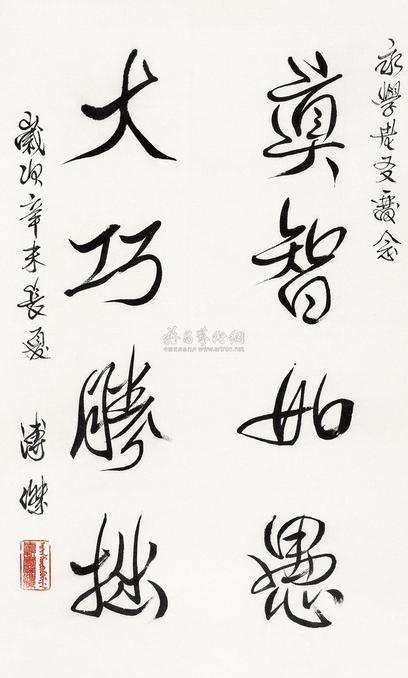 永學老友念
真智如愚
大巧勝拙
歲次辛未長夏 溥傑
雅昌藝術網
www.artron.net